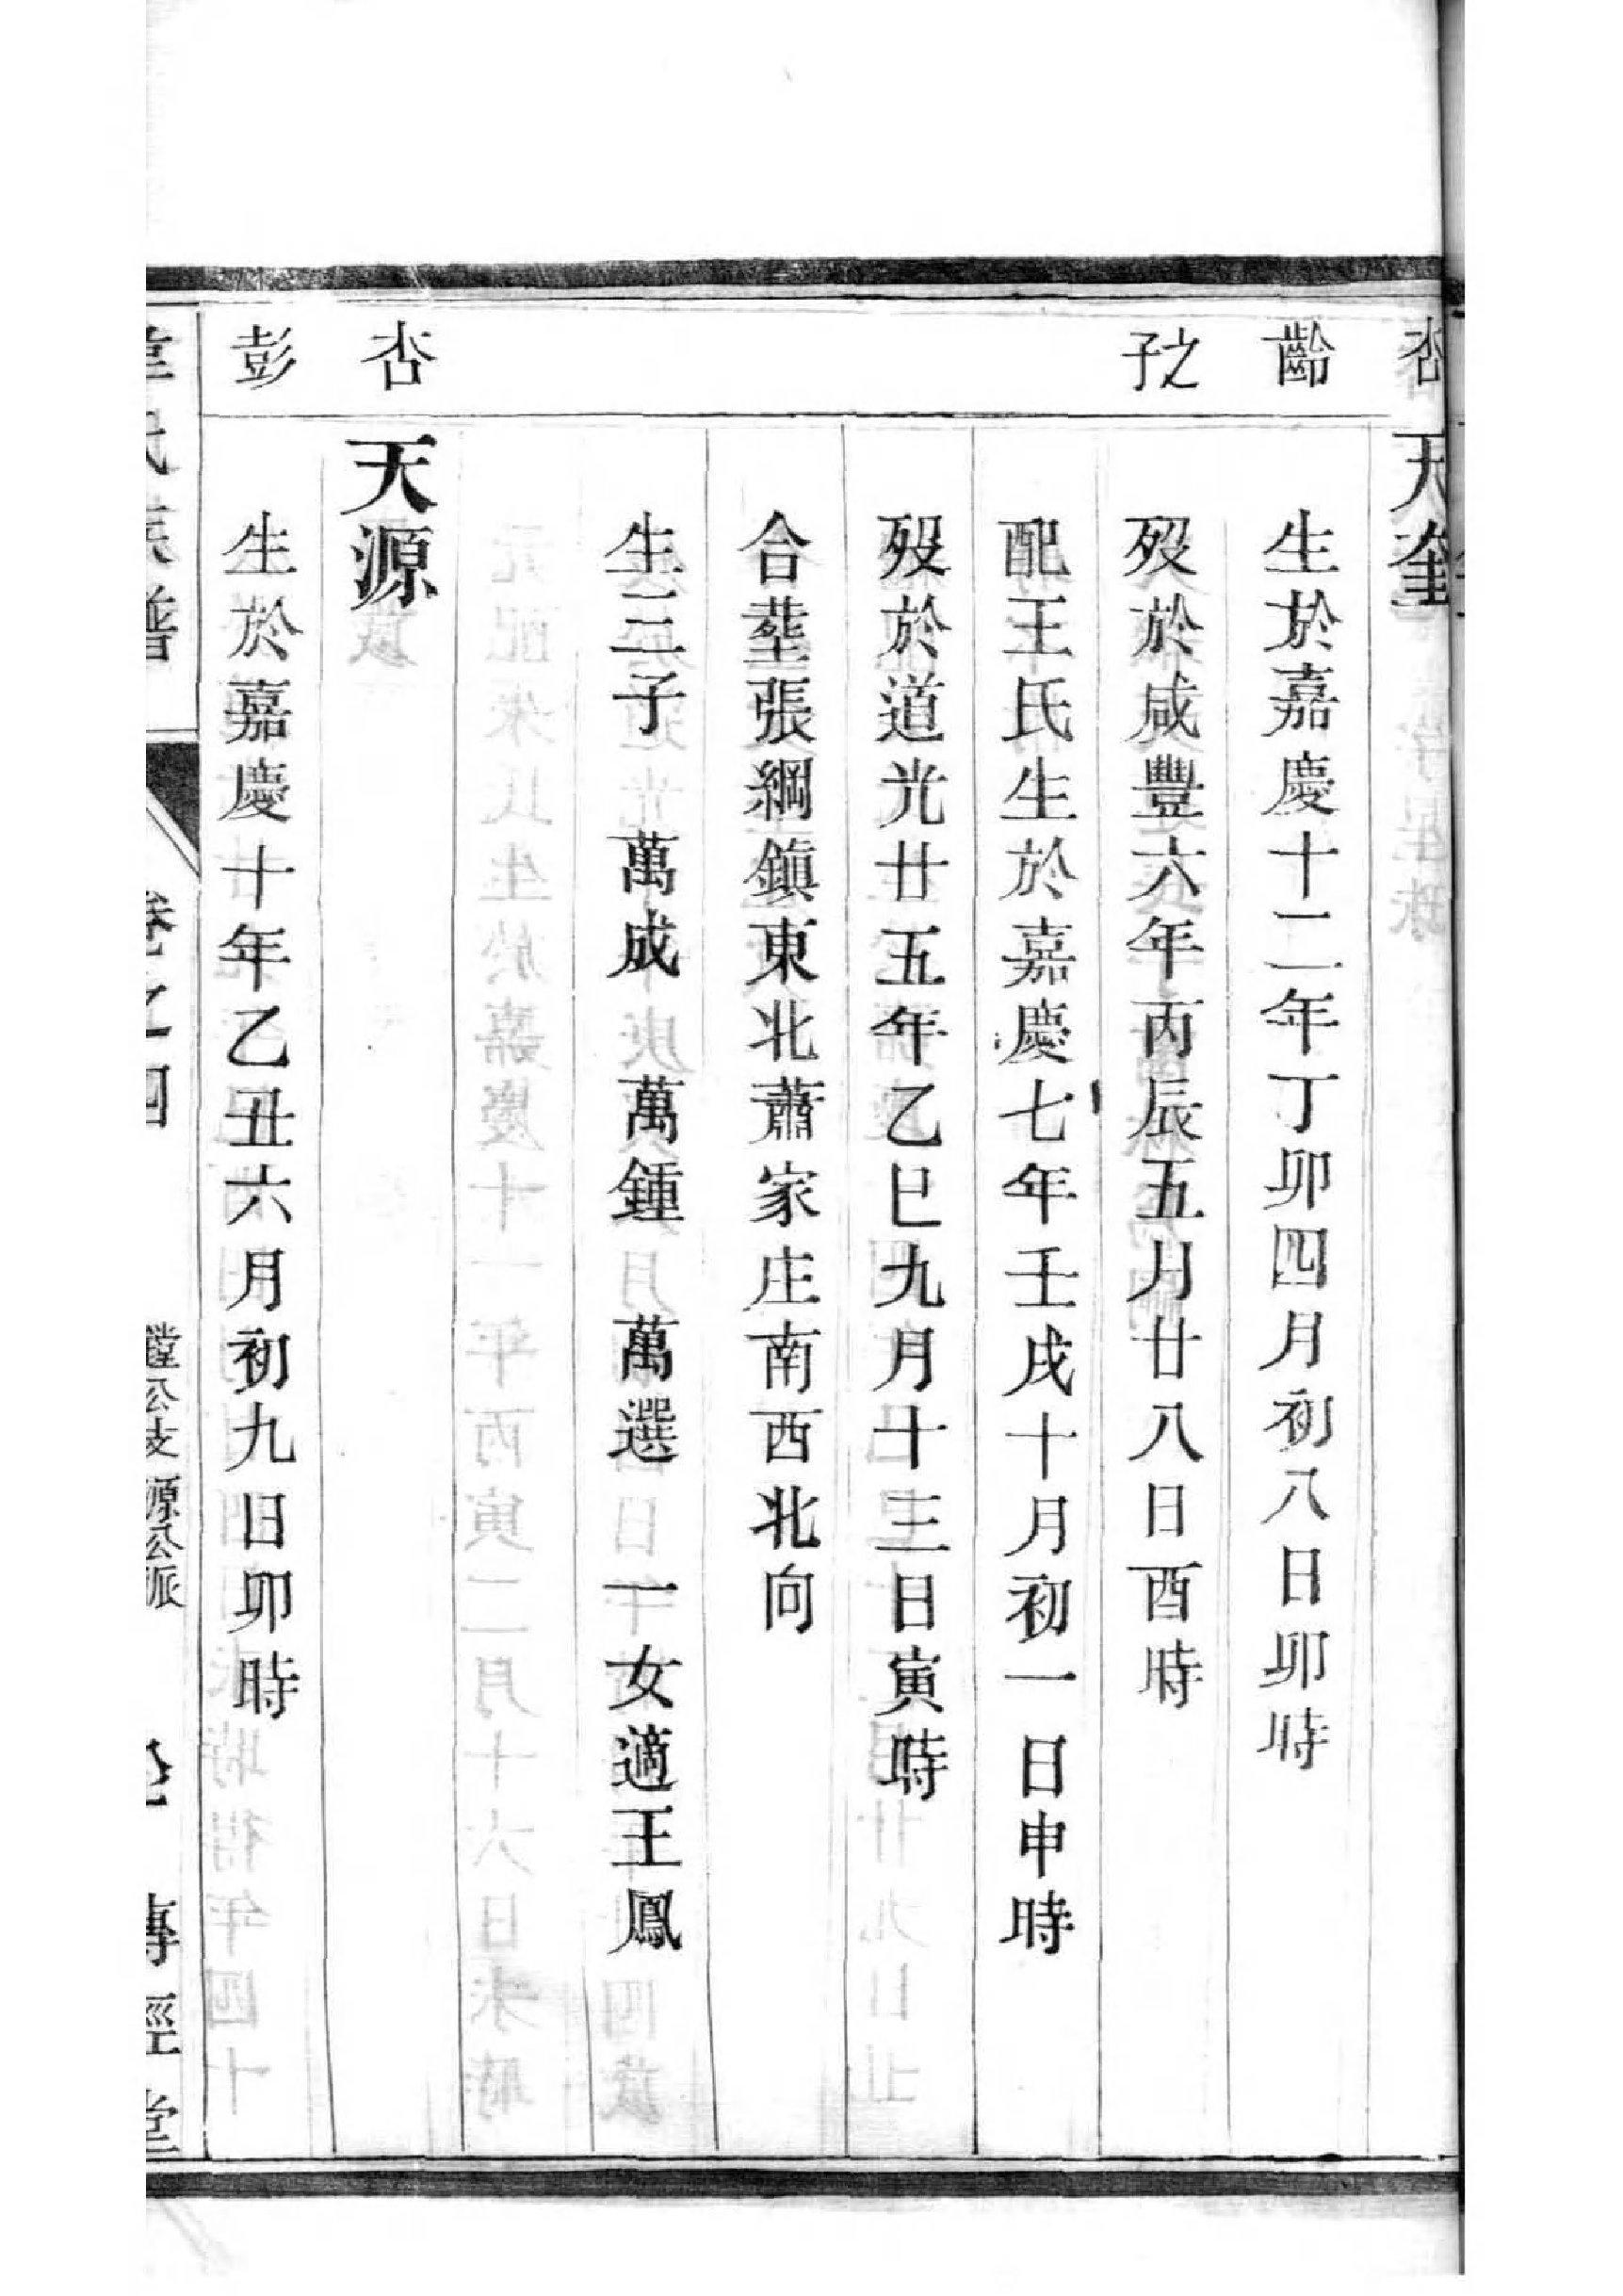 杏
齡
之子
天奎
生於嘉慶十二年丁卯四月初八日卯時
歿於咸豐六年丙辰五月廿八日酉時
配王氏生於嘉慶七年壬戌十月初一日申時
歿於道光廿五年乙巳九月十三日寅時
合塟張綱鎮東北蕭家庄南西北向
生三子 萬成 萬鍾 萬選 一女適王鳳
杏
彭
天源
生於嘉慶十年乙丑六月初九日卯時
氏族譜
卷之四
公支源公派
傳經堂